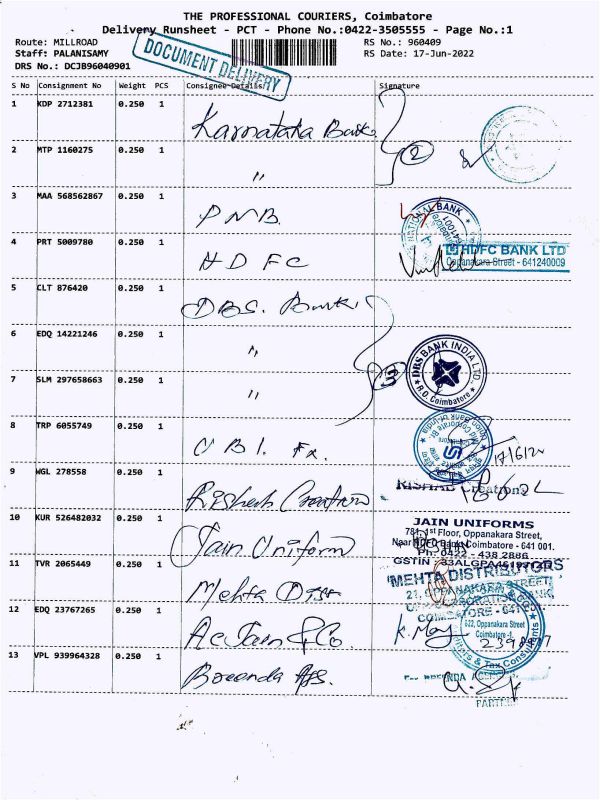 THE PROFESSIONAL COURIERS, Coimbatore
Delivery Runsheet - PCT - Phone No.:0422-3505555 - Page No.:1
Route: MILLROAD
RS No.: 960409
Staff: PALANISAMY
RS Date: 17-Jun-2022
DRS No.: DCJB96040901
DOCUMENT DELIVERY
S No Consignment No Weight PCS Consignee Details Signature
1 KDP 2712381 0.250 1 Karnataka Bank
2 MTP 1160275 0.250 1 " 2
3 MAA 568562867 0.250 1 PNB.
NATIONAL BANK
641001
4 PRT 5009780 0.250 1 HDFC
HDFC BANK LTD
Oppanakara Street - 641240009
5 CLT 876420 0.250 1 DBS. Bank
6 EDQ 14221246 0.250 1 "
7 SLM 297658663 0.250 1 " 3
DBS BANK INDIA LTD.,
R.O. Coimbatore
8 TRP 6055749 0.250 1 UBI. Fx.
17/6/22
9 WGL 278558 0.250 1 Rishab Creation
RISHAB Creations
10 KUR 526482032 0.250 1 Jain Uniform
JAIN UNIFORMS
781, 1st Floor, Oppanakara Street,
Near HDFC Bank, Coimbatore - 641 001.
Ph: 0422 - 438 2866
11 TVR 2065449 0.250 1 Mehta Diss
MEHTA DISTRIBUTORS
12 EDQ 23767265 0.250 1 Ac Jain & Co.
622, Oppanakara Street
Coimbatore -1.
& Tax Consultants
13 VPL 939964328 0.250 1
PARTNER